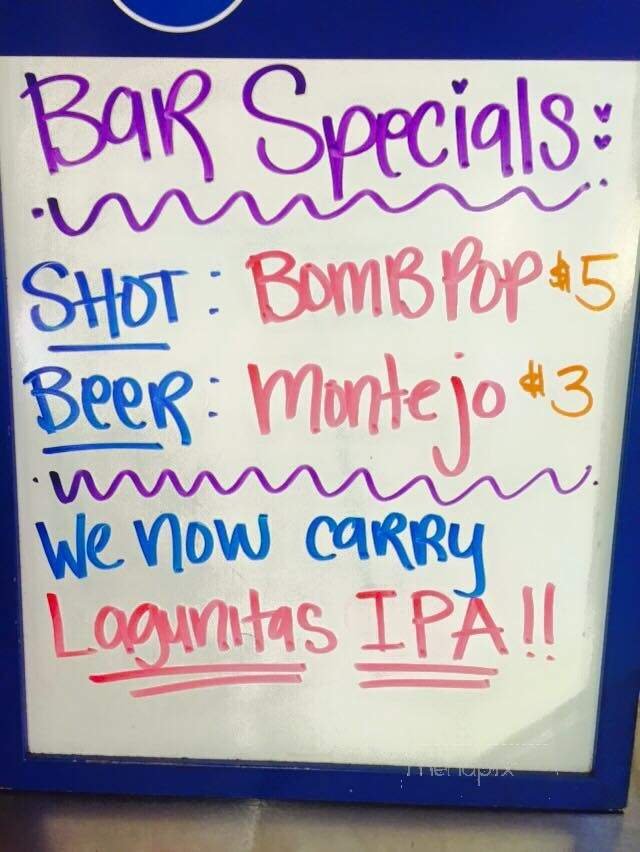 Bar Specials:
SHOT: BOMB POP $5
Beer: Montejo $3
We now carry
Lagunitas IPA!!
menupix